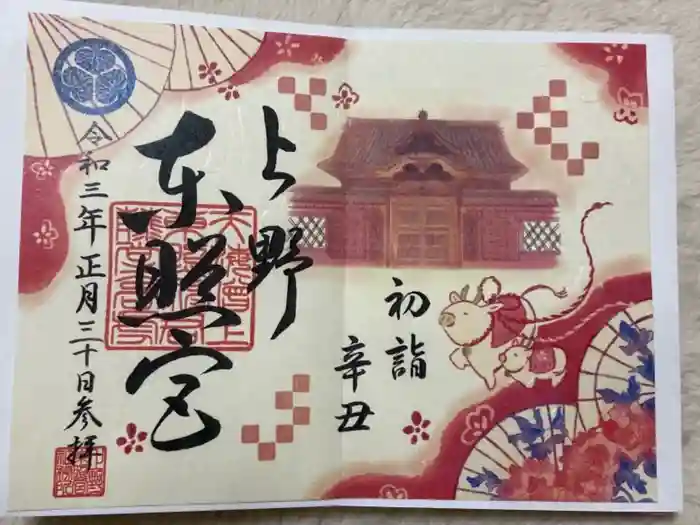 初詣
辛丑
上野
東照宮
令和三年正月三十日参拝